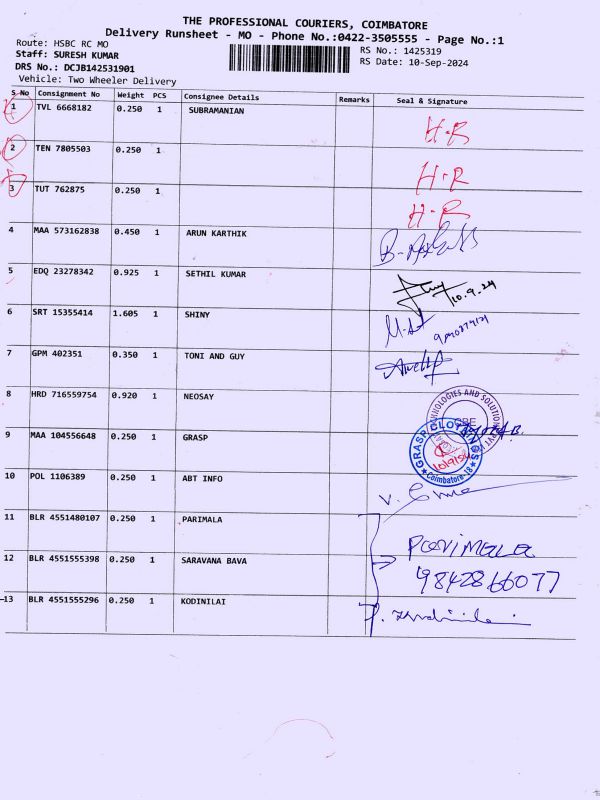 THE PROFESSIONAL COURIERS, COIMBATORE
Delivery Runsheet - MO - Phone No.:0422-3505555 - Page No.:1
Route: HSBC RC MO
Staff: SURESH KUMAR
DRS No.: DCJB142531901
Vehicle: Two Wheeler Delivery
RS No.: 1425319
RS Date: 10-Sep-2024
S No Consignment No Weight PCS Consignee Details Remarks Seal & Signature
1 TVL 6668182 0.250 1 SUBRAMANIAN H-R
2 TEN 7805503 0.250 1 H-R
3 TUT 762875 0.250 1 H-R
4 MAA 573162838 0.450 1 ARUN KARTHIK
5 EDQ 23278342 0.925 1 SETHIL KUMAR 10.9.24
6 SRT 15355414 1.605 1 SHINY
7 GPM 402351 0.350 1 TONI AND GUY
8 HRD 716559754 0.920 1 NEOSAY
9 MAA 104556648 0.250 1 GRASP
10 POL 1106389 0.250 1 ABT INFO
11 BLR 4551480107 0.250 1 PARIMALA
Parimala
12 BLR 4551555398 0.250 1 SARAVANA BAVA
9842866077
13 BLR 4551555296 0.250 1 KODINILAI